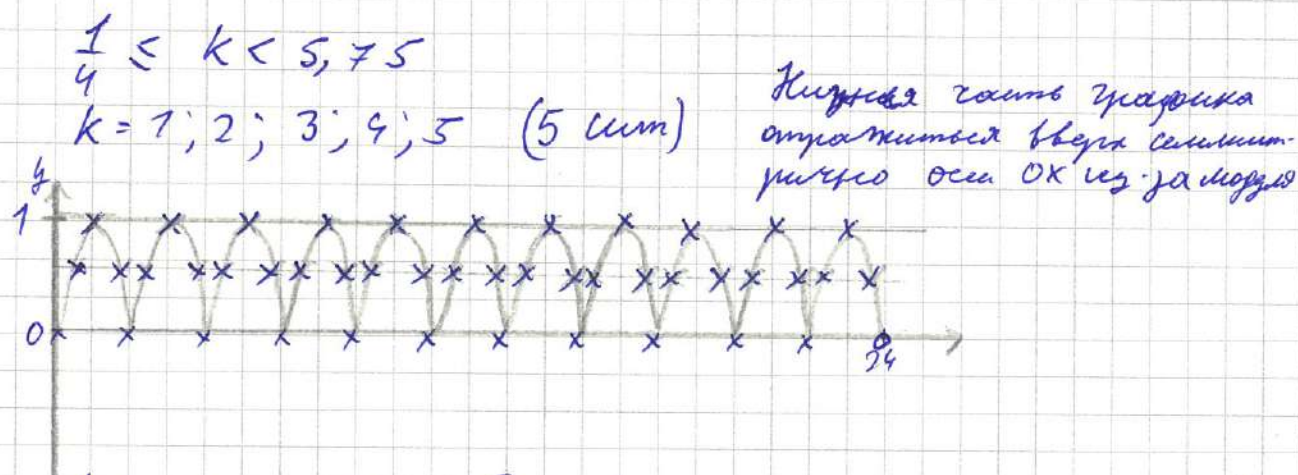 1/4 ≤ k < 5,75
k = 1; 2; 3; 4; 5 (5 шт)
Нижняя часть графика
отражиться вверх симмит-
рично оси OX из-за модуля
y
1
0